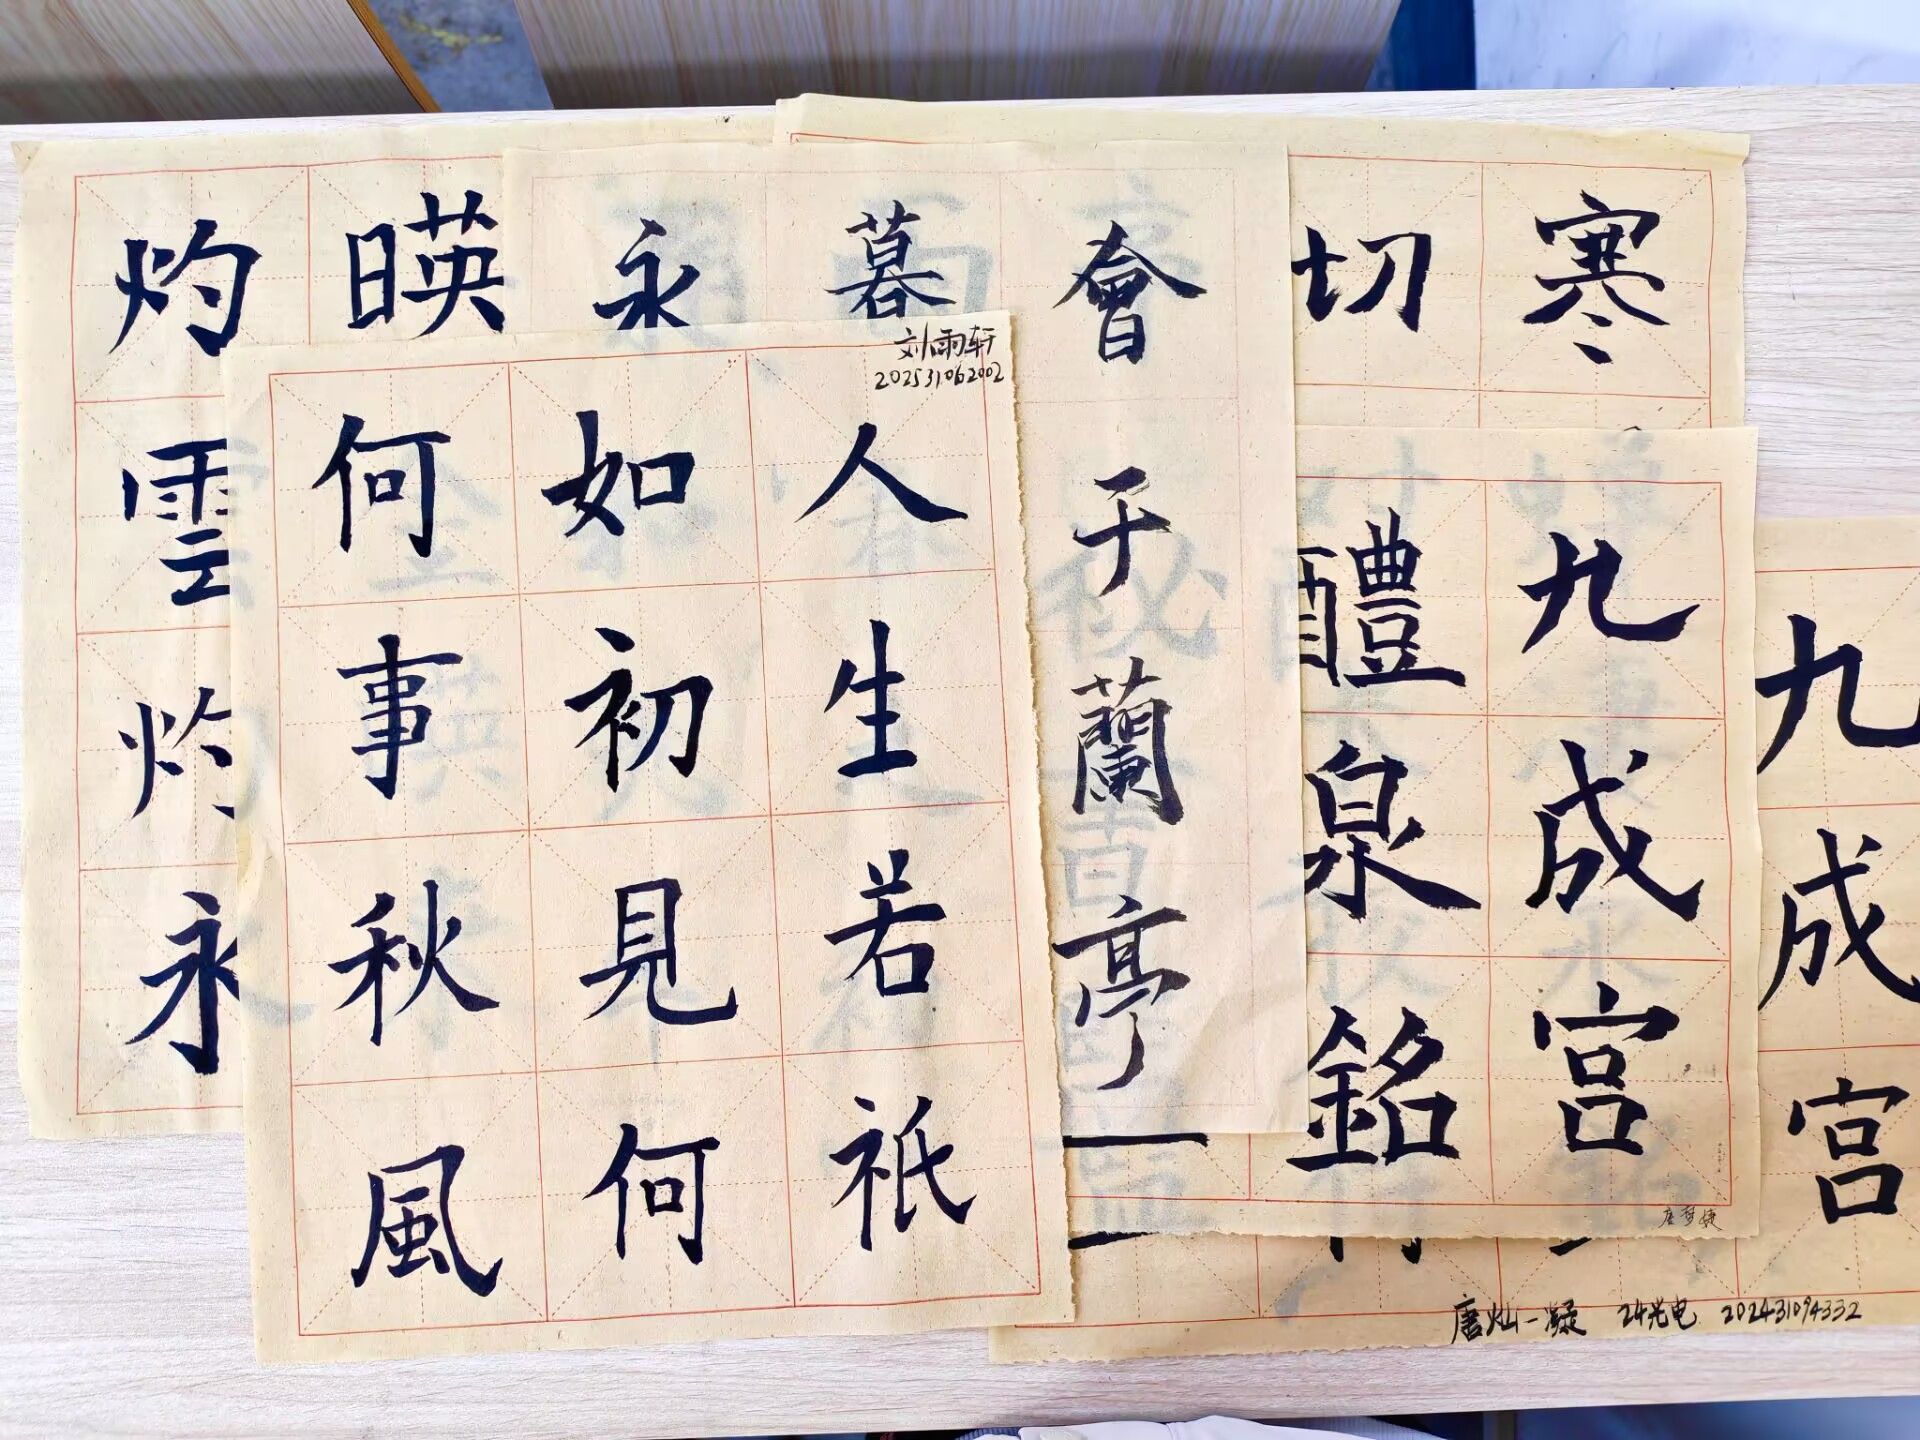 刘雨轩
202531062002
人生若祇
如初見何
何事秋風
暎
灼雲灼永
會于蘭亭
暮
永
寒
切
九成宫
醴泉銘
九成宫
唐灿一凝 24光电 202431094332